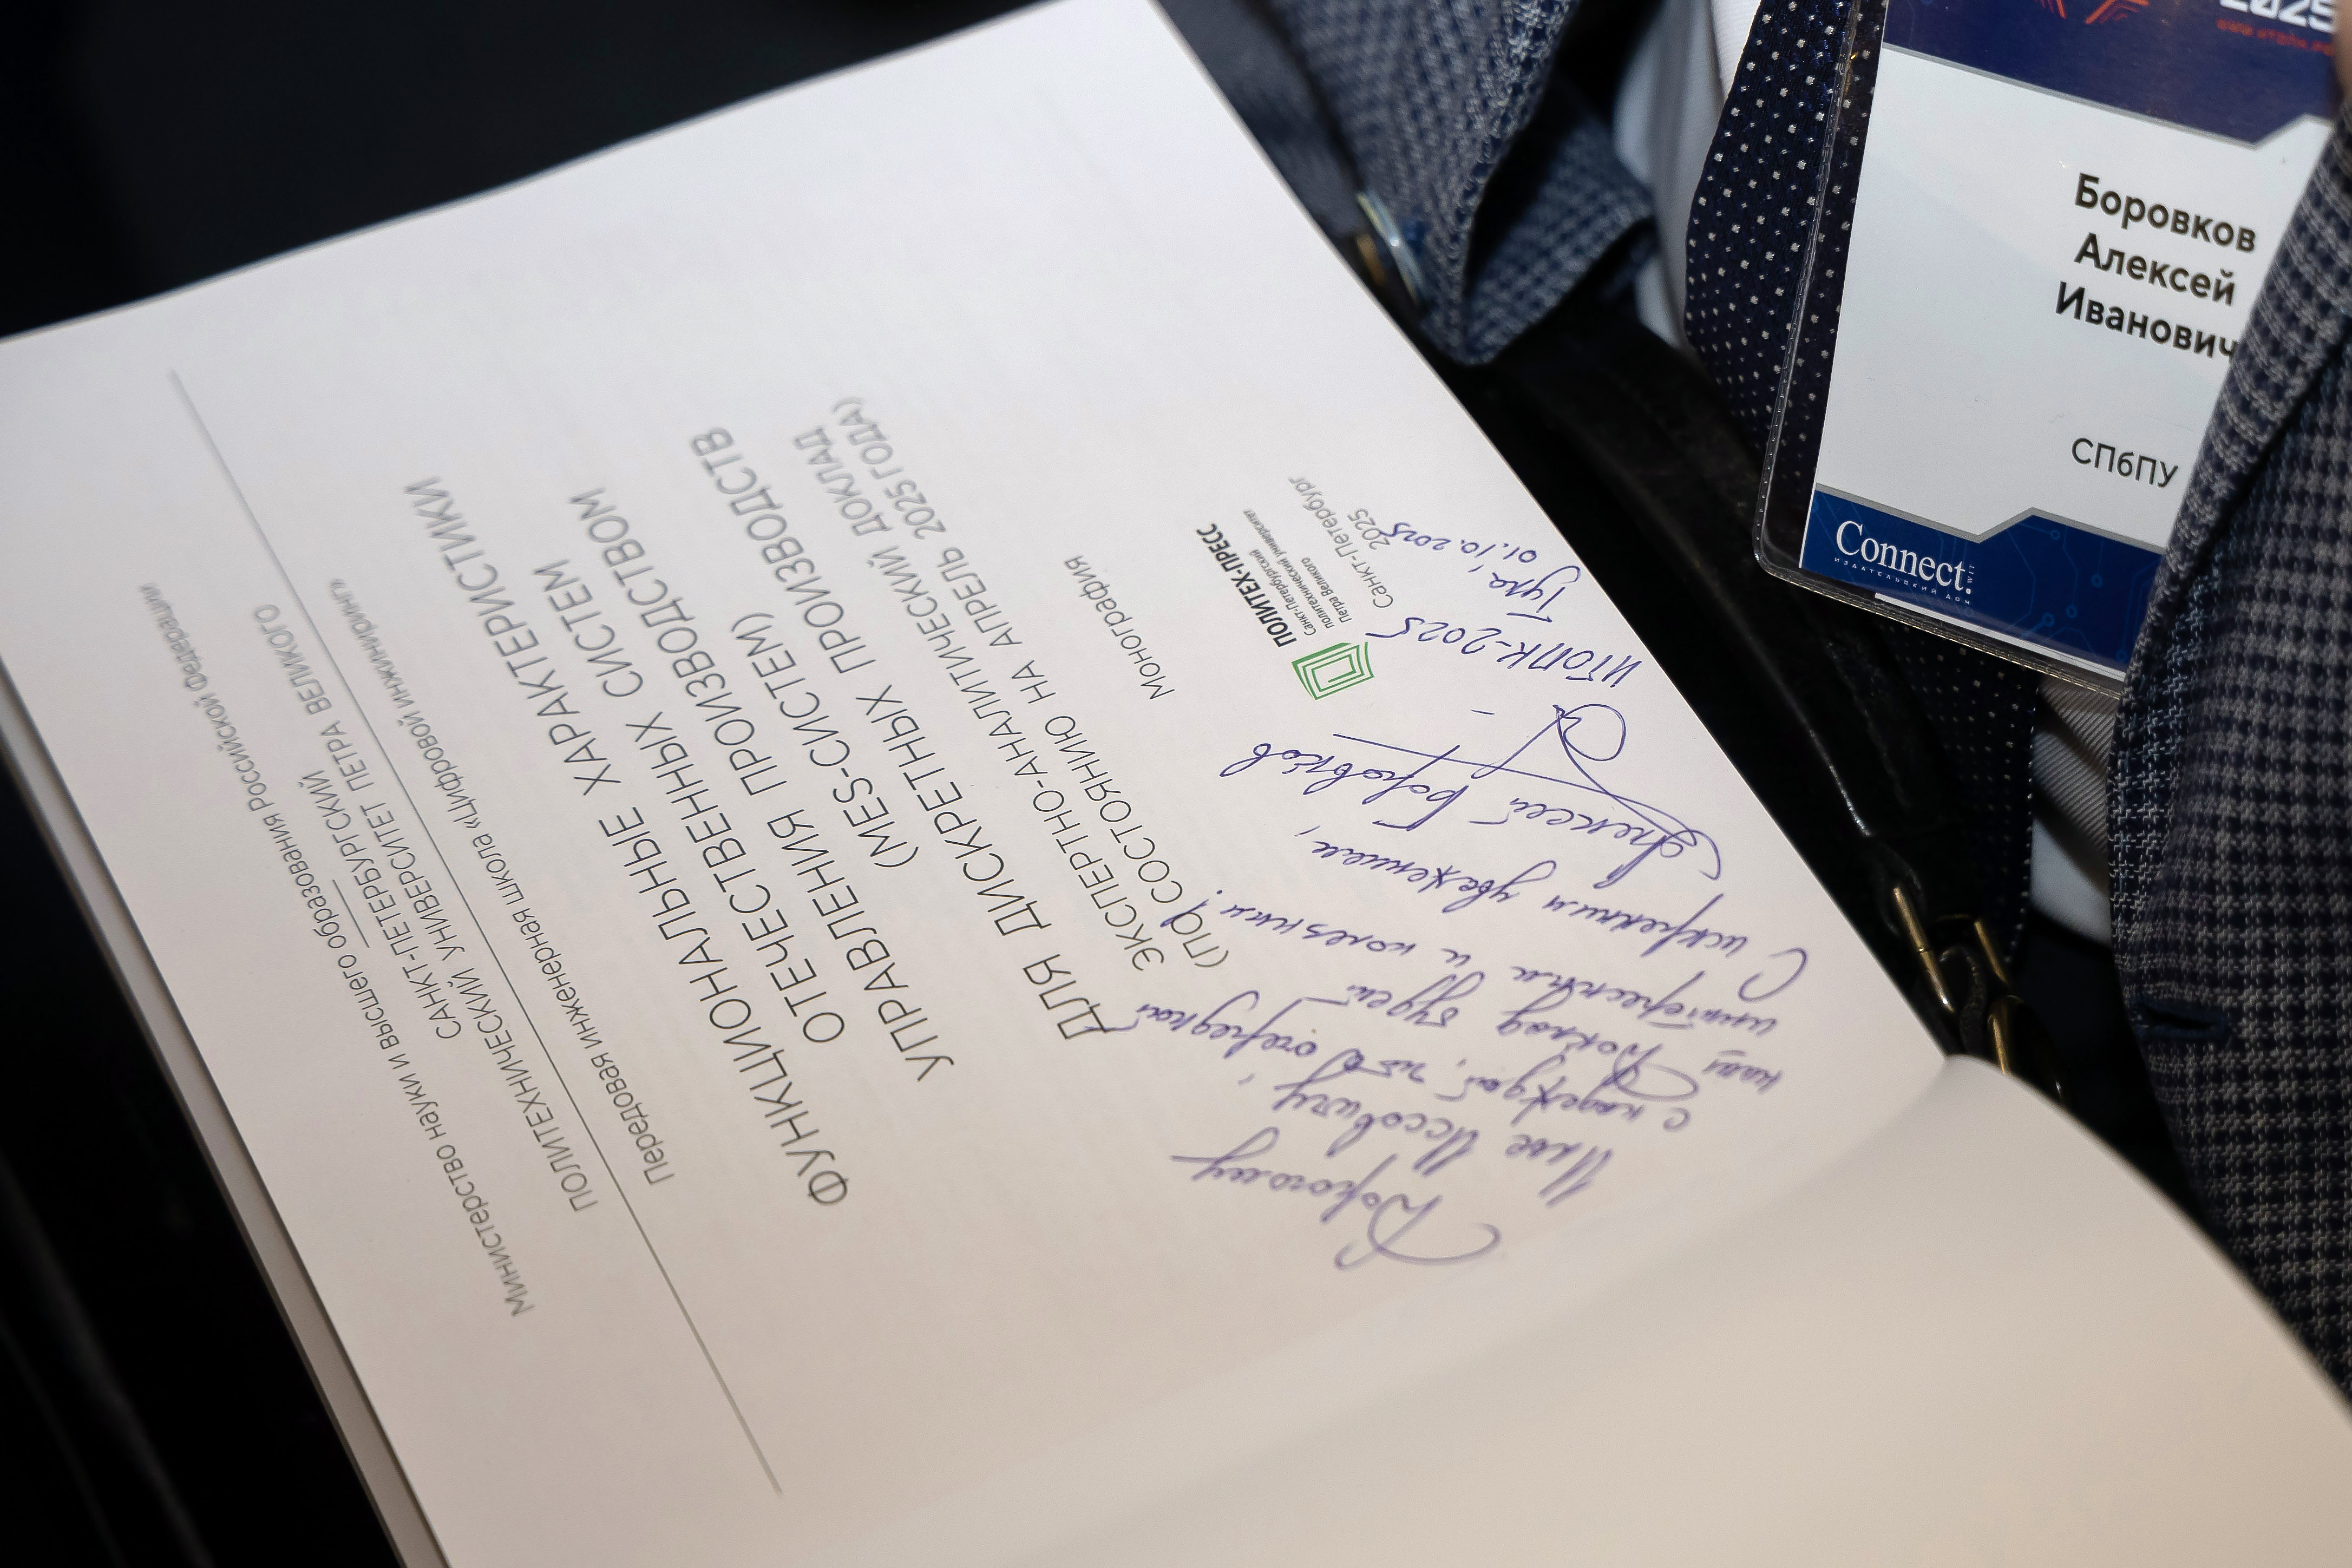 Министерство науки и высшего образования Российской Федерации
САНКТ-ПЕТЕРБУРГСКИЙ
ПОЛИТЕХНИЧЕСКИЙ УНИВЕРСИТЕТ ПЕТРА ВЕЛИКОГО
Передовая инженерная школа «Цифровой инжиниринг»
ФУНКЦИОНАЛЬНЫЕ ХАРАКТЕРИСТИКИ
ОТЕЧЕСТВЕННЫХ СИСТЕМ
УПРАВЛЕНИЯ ПРОИЗВОДСТВОМ
(MES-СИСТЕМ)
ДЛЯ ДИСКРЕТНЫХ ПРОИЗВОДСТВ
ЭКСПЕРТНО-АНАЛИТИЧЕСКИЙ ДОКЛАД
(ПО СОСТОЯНИЮ НА АПРЕЛЬ 2025 ГОДА)
Монография
ПОЛИТЕХ-ПРЕСС
Санкт-Петербургский
политехнический университет
Петра Великого
Санкт-Петербург
2025
Дорогому
Илье Иссовичу,
с надеждой, что очередной
наш Доклад будет
интересным и полезным!
С искренним уважением,
Алексей Боровков
ИТОПК-2025
Тула,
01.10.2025
2025
Боровков
Алексей
Иванович
СПбПУ
Connect
ИЗДАТЕЛЬСКИЙ ДОМ